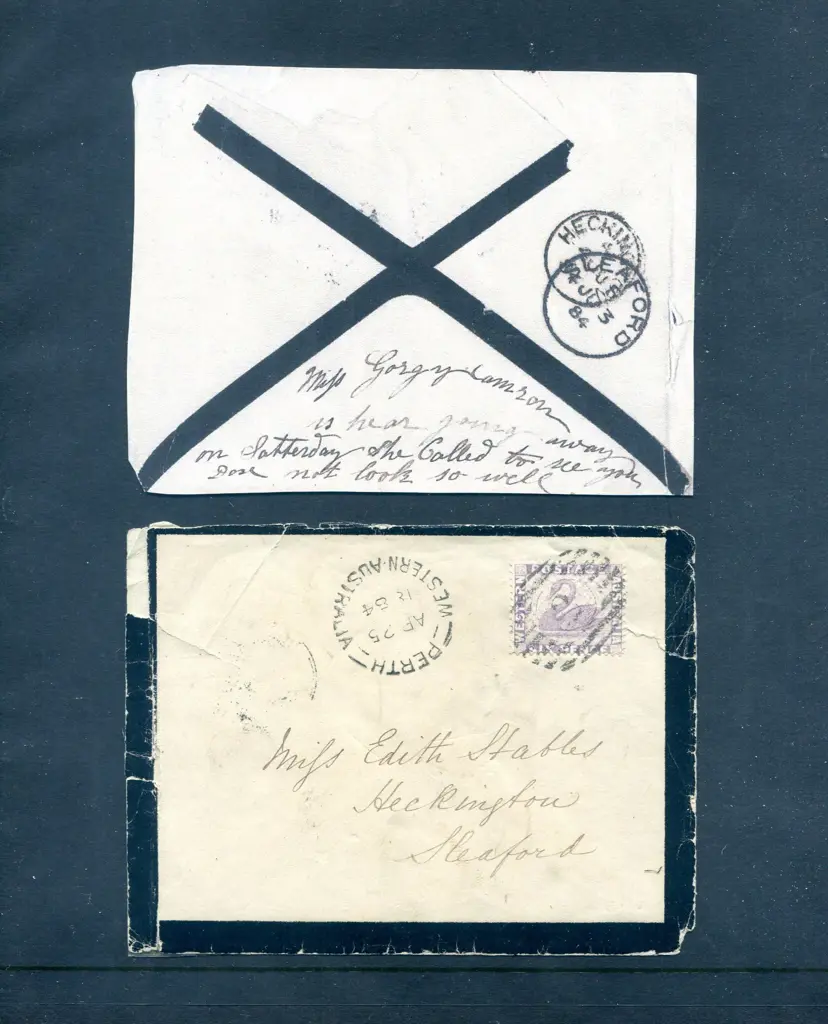 HECKIN
SLEAFORD
JU 3
84
Miss Gorgy Camron
is hear going away
on Satterday She Called to see you
Dose not look so well
PERTH
WESTERN-AUSTRALIA
AP 25
84
Miss Edith Stables
Heckington
Sleaford